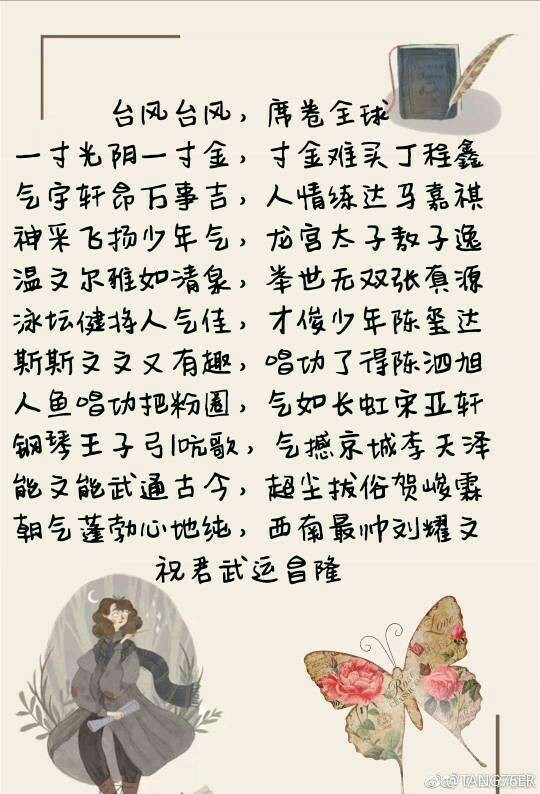 台风台风，席卷全球
一寸光阴一寸金，寸金难买丁程鑫
气宇轩昂万事吉，人情练达马嘉祺
神采飞扬少年气，龙宫太子敖子逸
温文尔雅如清泉，举世无双张真源
泳坛健将人气佳，才俊少年陈玺达
斯斯文文又有趣，唱功了得陈泗旭
人鱼唱功把粉圈，气如长虹宋亚轩
钢琴王子引吭歌，气撼京城李天泽
能文能武通古今，超尘拔俗贺峻霖
朝气蓬勃心地纯，西南最帅刘耀文
祝君武运昌隆
Love
Rose
@TANG76ER